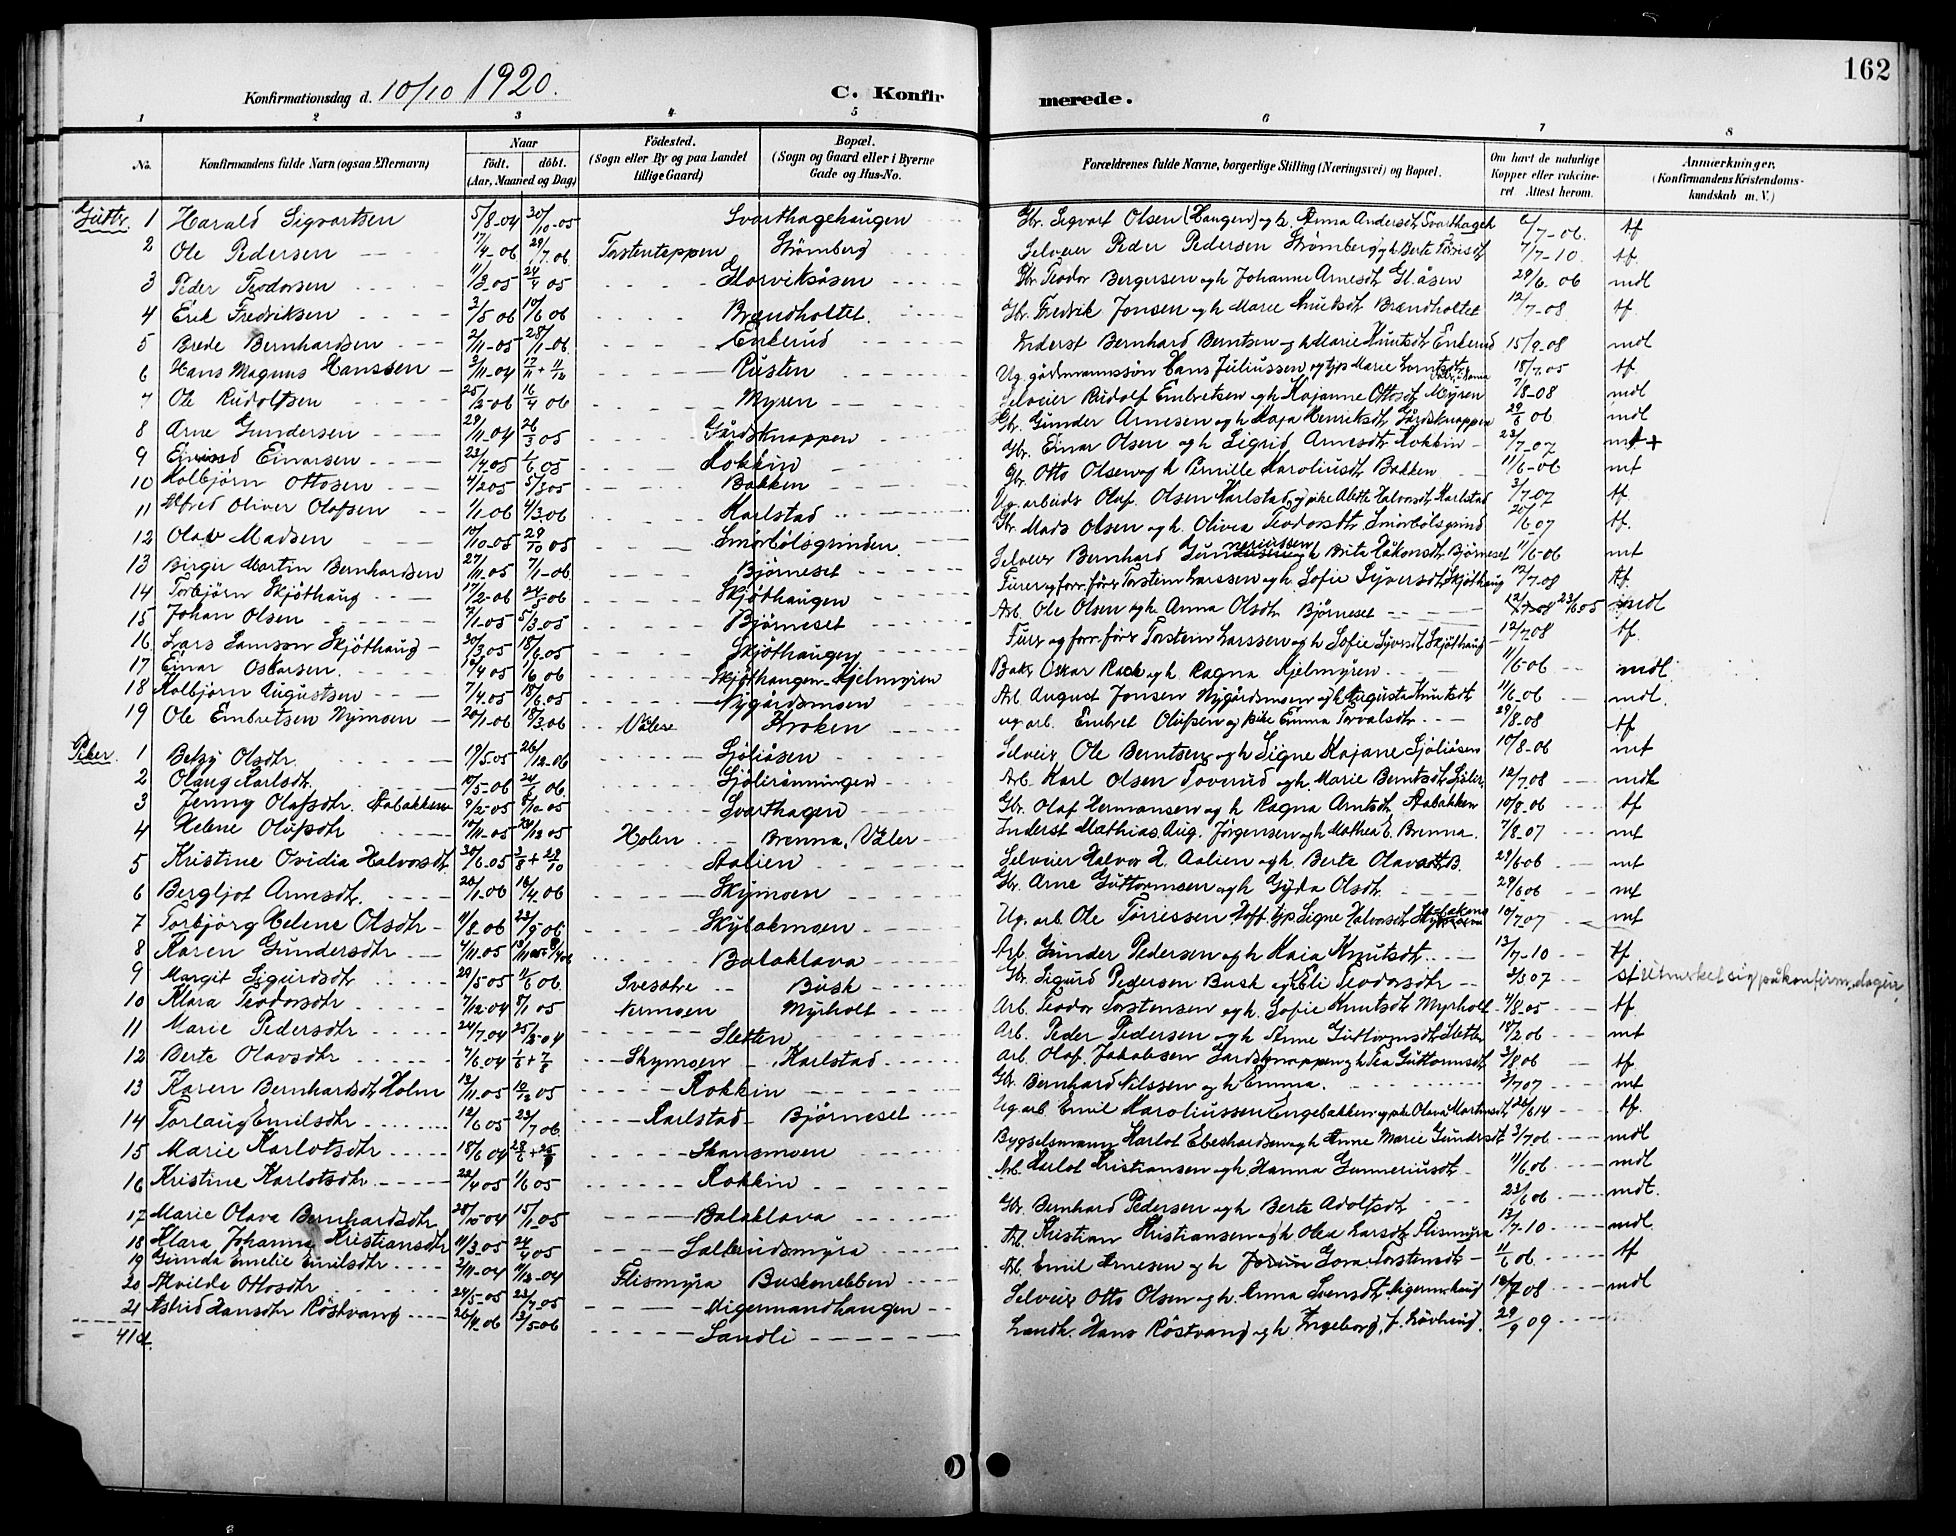 162
Konfirmationsdag d. 10/10 1920. C. Konfirmerede.
1 2 3 4 5 6 7 8
No. Konfirmandens fulde Navn (ogsaa Efternavn) Naar födt. döbt. (Aar, Maaned og Dag) Födested. (Sogn eller By og paa Landet tillige Gaard) Bopæl. (Sogn og Gaard eller i Byerne Gade og Hus-No. Forældrenes fulde Navne, borgerlige Stilling (Næringsvei) og Bopæl. Om havt de naturlige Kopper eller vakcineret Attest herom. Anmærkninger. (Konfirmandens Kristendomskundskab m. V.)
Gutter. 1 Harald Sigvartsen 5/8-04 30/10-05 Svarthagehaugen Gbr. Sigvart Olsen (Haugen) og h. Anna Andersdt. Svarthageh /7-06. tf
2 Ole Pedersen 17/4-06 29/7 06. Torstenteppen Strömberg Selveier Peder Pedersen Strömberg og h. Berte 7/7-10. tf.
3 Peder Teodorsen 11/3 05 24/4 05 Glorviksåsen Gbr. Teodor Bergersen og h Johanne Arnesdt. Gl.åsen 29/6. 06 mdl
4 Erik Fredriksen 3/5 06 10/6 06 Brændholtet. Gbr. Fredrik Jonsen og h Marie Knutsdt Brændholtet 12/7-08. tf.
5 Brede Bernhardsen 2/11-05 28/1-06 Enkerud Inderst Bernhard Berntsen og h Marie Knutsdt. Enkerud 15/9-08 mdl
6 Hans Magnus Hanssen 3/11-04 17/11 + 11/12 Rusten Ug. gårdmannssön Hans Juliussen og tjp Marie 18/7.05 tf
7 Ole Rudolfsen 25/2-06 16/4 06 Myren Selveier Rudolf Embretsen og h Kajanne Ottosdt Myren 7/8-08 mdl
8 Arne Gundersen 29/11-04 26/3 05 Gårdsknappen Gbr. Gunder Arnesen og h Kaja Henriksdt. Gårdsknappen 29/6 06 mdl
9 Einarsen 22/4.05 1/6 05 Kokkin Gbr. Einar Olsen og h Sigrid Arnesdt. Kokkin 23/7-07 mt +
10 Kolbjörn Ottosen 4/2 05 5/3 05 Bakken Gbr. Otto Olsen og h Pernille Karoliusdt Bakken 11/6-06 mt
11 Alfred Oliver Olafsen 1/1.06 4/3.06 Karlstad Ug. arbeids Olaf Olsen Karlstad, og pike Alette Halvorsdt. Karlstad 3/7.07 tf.
12 Olav Madsen 10/10-05 29/10 05 Smörbölsgrinden. Gbr. Mads Olsen og h. Olivia Teodorsdtr. Smörbölsgrind 20/6 07 tf.
13 Birger Martin Bernhardsen 27/11-05 7/1-06 Björneset Selveier Bernhard Gunneriussen og h Brita Håkonsdt. Björneset 11/6-06 mt
14 Torbjörn Skjöthaug 17/2-06 24/5-06 Skjöthaugen Furer og forr.förer Torstein Larssen og h. Sofie Syversdt. Skjöthaug 12/7.08 tf.
15 Johan Olsen 2/1-05 5/3 05 Björneset Arb. Ole Olsen og h Anna Olsdt. Björneset 12/7-08 23/6 05 mdl
16 Lars Samson Skjöthaug 30/3.05 18/6.05 Skjöthaugen Furer og forr.förer Torstein Larssen og h Sofie Syversdt. Skjöthaug 12/7.08 tf.
17 Einar Oskarsen. 12/4 05 11/6 06 Skjöthaugen-Kjelmyren Bak. Oskar Rack og h. Ragna Kjelmyren 11/6-06 mdl.
18 Kolbjörn Augustsen 7/4.05 18/6.05 Nygårdsmoen Arb. August Jonsen Nygårdsmoen og h Augusta Knutsdt 11/6-06 mdl.
19 Ole Embretsen Nymoen 20/1-06 18/3.06 Våler Kroken ug. arb. Embret Olufsen og pike Emma Torvalsdtr. 29/8-08 tf
Piker. 1 Betzy Olsdtr. 19/5.05 26/12-06 Sjöliåsen Selveier Ole Berntsen og h Signe Kajane Sjöliåsen 10/8-06 mt
2 Olaug Karlsdt. 10/5-06 24/6 06. Sjölirönningen Arb. Karl Olsen Toverud og h. Marie Berntsdtr. 12/7.08 mdl
3 Jenny Olafsdtr. Stabakken 9/2-05 8/10-05 Svarthagen Gbr. Olaf Hermansen og h Ragna Arntsdt. Stabakken 10/8.06 tf
4 Helene Olufsdtr 10/11-05 24/12 05 Holen Brenna, Våler Inderst Mathias Aug. Jörgensen og h Mathea E. Brenna. 7/8.07 mt
5 Kristine Ovidia Halvorsdt. 30/6.05 3/9 + 29/10 Aalien Selveier Halvor H. Aalien og h. Berte Olavsdtt. B. 29/6 06 mt
6 Bergljot Arnesdtr. 20/1-06 16/4.06 Skymoen Gbr. Arne Guttormsen og h Gyda Olsdt. 29/6 06 mt
7 Torbjörg Helene Olsdtr 11/8-06 23/9 06 Skybakmoen Ug. arb. Ole Törrissen Hoff tjp Signe Halvorsdt 10/7-07 mt
8 Karen Gundersdtr 4/11.05 Balaklava Arb. Gunder Pedersen og h Kaia Knutsdt. 13/7-10 tf
9 Margit Sigurdsdtr 29/5 05 11/6 06. Svesetre Busk Gbr. Sigurd Pedersen Busk og Eli Teodorsdtr 3/6 07 st Utmerket sig på konfirm. dagen
10 Klara Teodorsdtr 7/12.04 8/1 05 Nermoen Myrholt Arb. Teodor Torstensen og h. Sofie Knutsdt Myrholt 4/8-05 tf
11 Marie Pedersdtr 24/7 04 25/8-04 Sletten Arb. Peder Pedersen og h Anne Guttormsdt. Slette 18/2 06 mt
12 Berte Olavsdtr 7/6 04 Skymoen Karlstad Arb. Olaf Jakobsen Gardsknappen og h Tea Guttormsdt. 3/8 06 tf
13 Karen Bernhardsdt. Holm 12/11.05 10/12 05 Kokkin Gbr. Bernhard Nilssen og h Emma. 3/7 07 mt
14 Torlaug Emilsdtr. 12/6 05 23/7 06 Karlstad Björneset Ug. arb. Emil Karoliussen Engebakken og pike Olava Martinsdt. 26/6 14 tf.
15 Marie Karlotsdtr 18/6 04 Skansmoen Bygselsmann Karlot Eberhardsen og h Anne Marie Gundersdt 3/7 06 mdl
16 Kristine Karlotsdtr. 22/4 05 1/6 05 Kokkin Arb. Karlot Kristiansen og h. Hanna Gunneriusdt. 11/6 06 mdl
17 Marie Olava Bernhardsdtr 28/10-04 15/1.05 Balaklava Gbr. Bernhard Pedersen og h Berte Adolfsdt 23/6 06 mdl.
18 Klara Johanna Kristiansdtr 11/3.05 24/4 05 Salterudsmyra Arb. Kristian Kristiansen og h Olea Larsdt. Flismyra 13/7-10 mdl
19 Gunda Emelie Emilsdtr 2/11-04 11/12-04 Flismyra Buskenebben Arb. Emil Arnesen og h Gora Torstensdt 11/6 06. tf
20 Alvilde Ottosdtr 24/5-05 23/7.05 Migermandhaugen Selveier Otto Olsen og h. Anna Svensdt. 12/7 08 mdl
21 Astrid Hansdtr Röstvang 26/11.06 13/5-06 Sandli Landh. Hans Röstvang og h. Ingeborg, f. 29/9 09
41